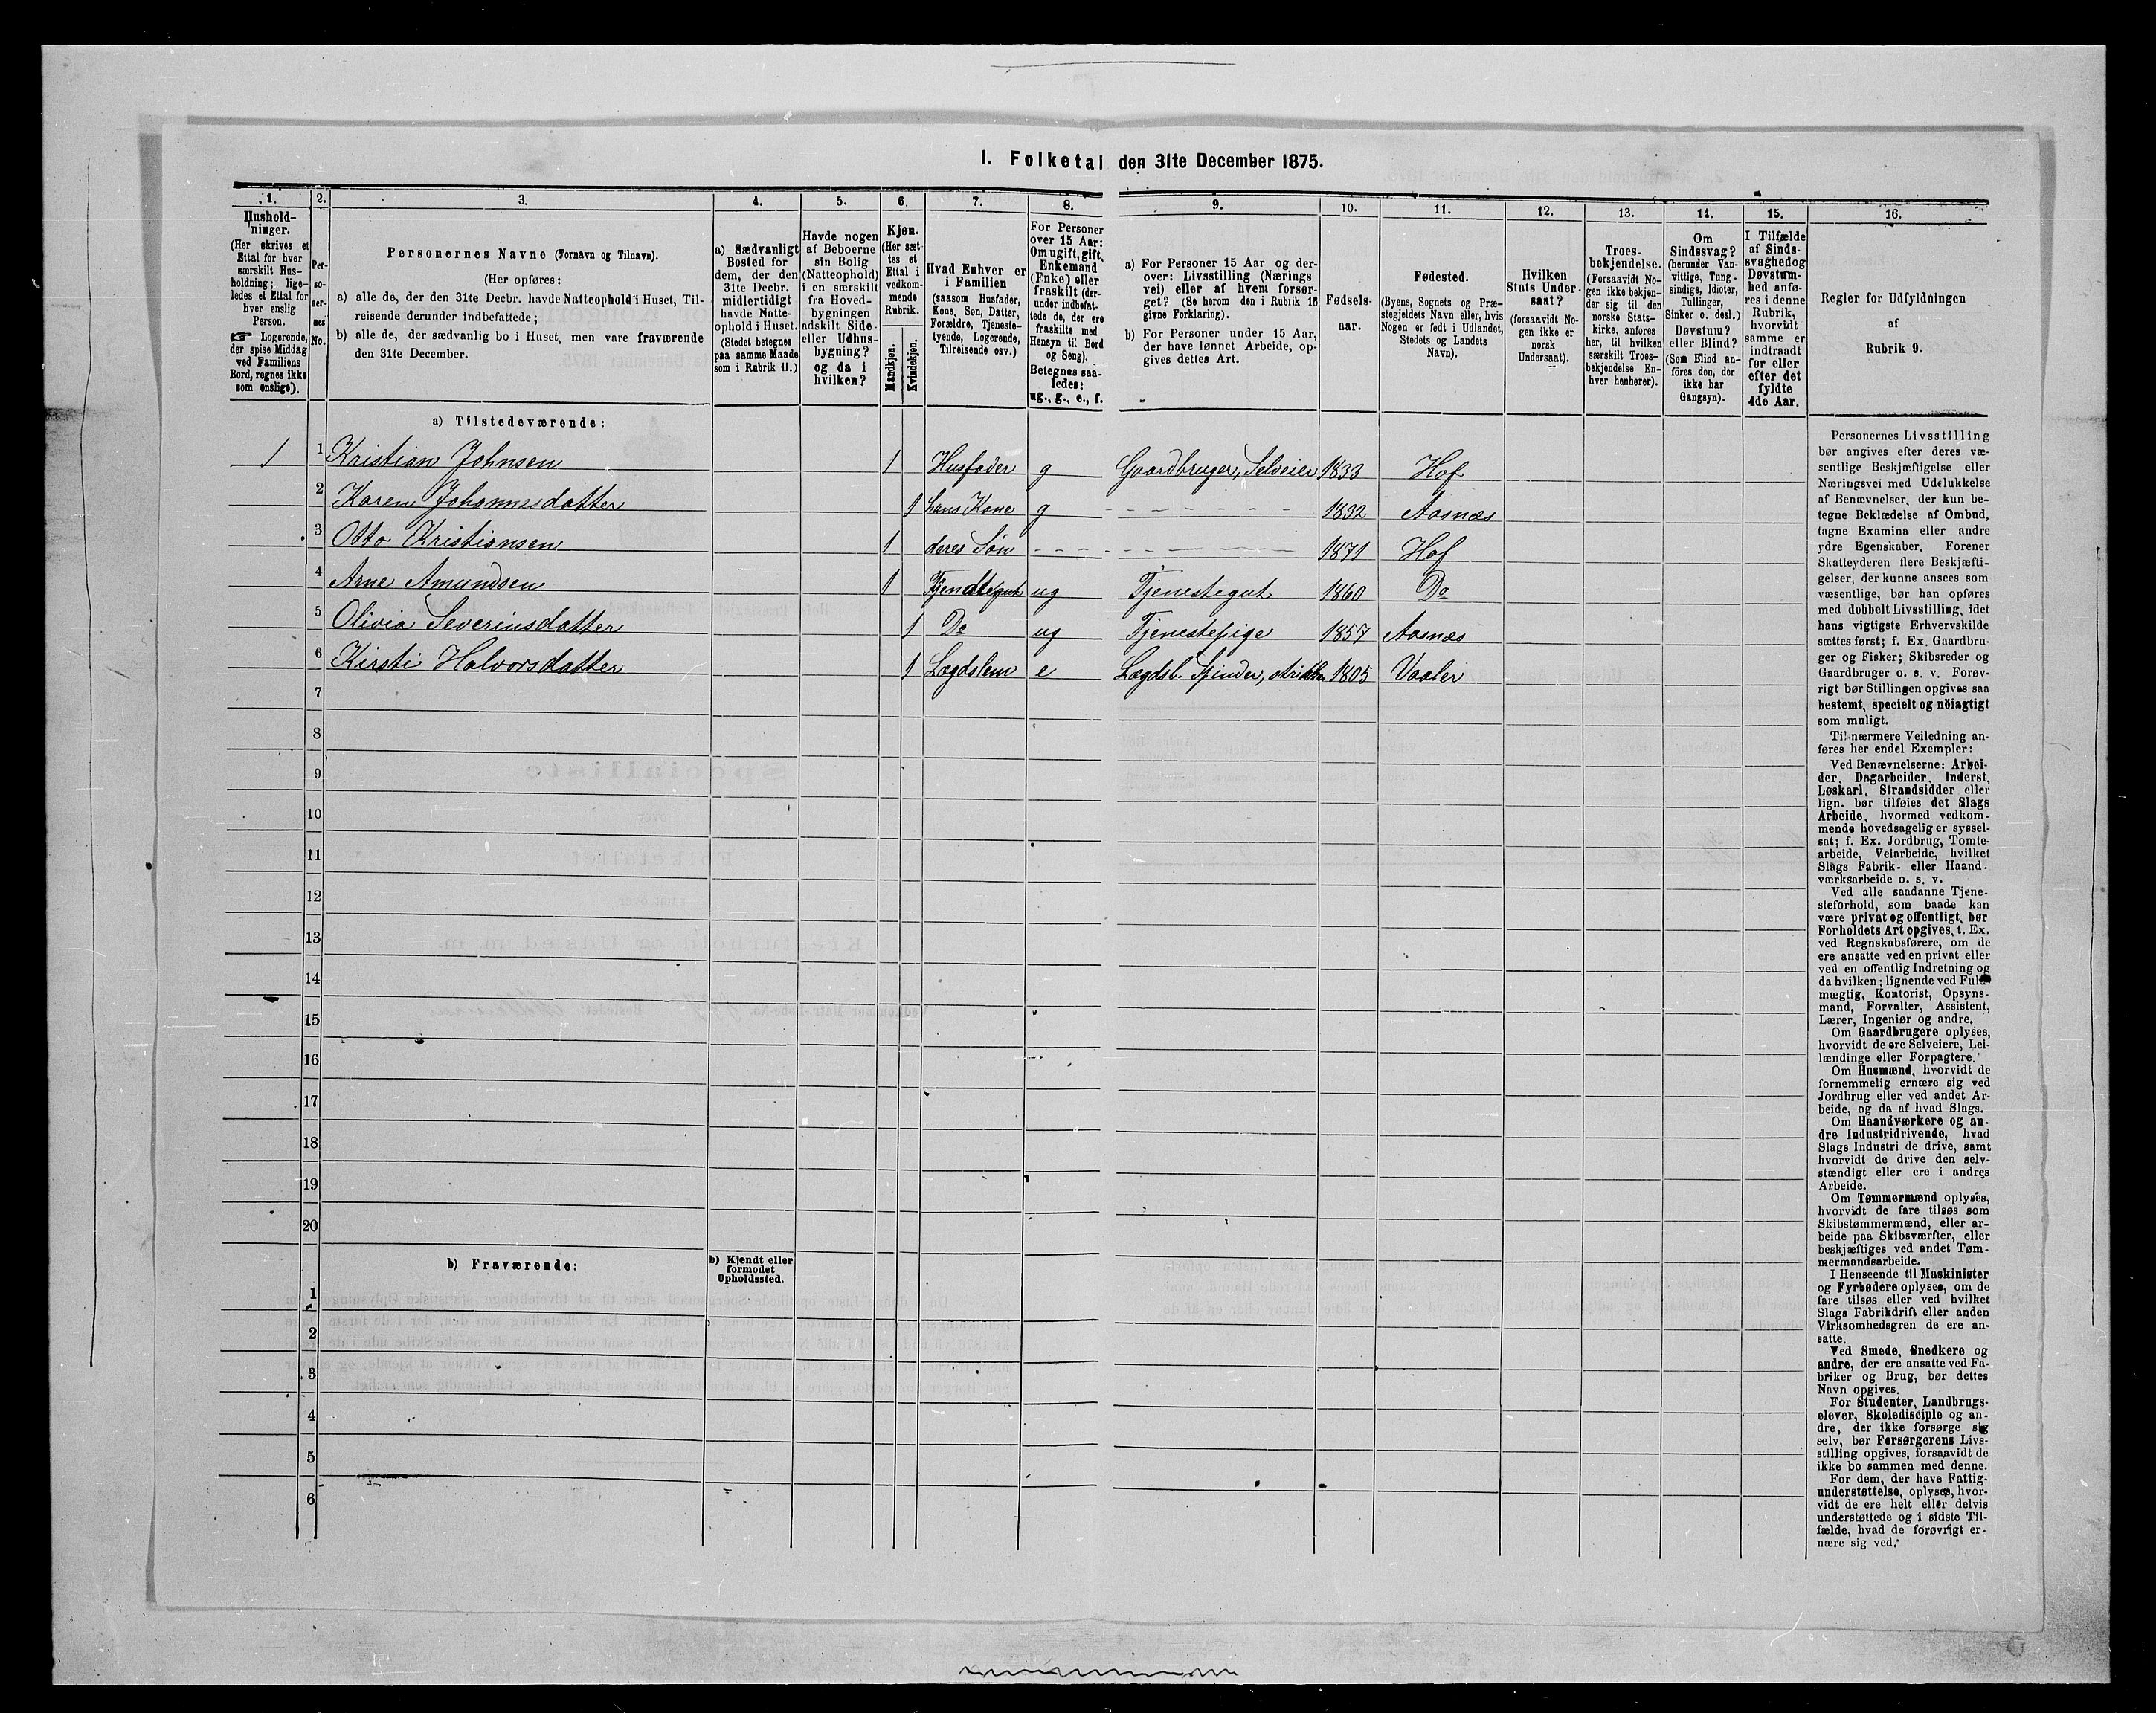 I. Folketal den 31te December 1875.
1. 2. 3. 4. 5. 6. 7. 8. 9. 10. 11. 12. 13. 14. 15. 16.
Hushold-
ninger.
(Her skrives et
Ettal for hver
særskilt Hus-
holdning; lige-
ledes et Ettal for
hver enslig
Person.
☞ Logerende,
der spise Middag
ved Familiens
Bord, regnes ikke
som enslige).
Per-
so-
ner-
nes
No.
Personernes Navne (Fornavn og Tilnavn).
(Her opføres:
a) alle de, der den 31te Decbr. havde Natteophold i Huset, Til-
reisende derunder indbefattede;
b) alle de, der sædvanlig bo i Huset, men vare fraværende
den 31te December.
a) Sædvanligt
Bosted for
dem, der den
31te Decbr.
midlertidigt
havde Natte-
ophold i Huset.
(Stedet betegnes
paa samme Maade
som i Rubrik 11.)
Havde nogen
af Beboerne
sin Bolig
(Natteophold)
i en særskilt
fra Hoved-
bygningen
adskilt Side-
eller Udhus-
bygning?
og da i
hvilken?
Kjøn.
(Her sæt-
tes et
Ettal i
vedkom-
mende
Rubrik.
Mandkjøn.
Kvindekjøn.
Hvad Enhver er
i Familien
(saasom Husfader,
Kone, Søn, Datter,
Forældre, Tjeneste-
tyende, Logerende,
Tilreisende osv.)
For Personer
over 15 Aar:
Om ugift, gift,
Enkemand
(Enke) eller
fraskilt (der-
under indbefat-
tede de, der ere
fraskilte med
Hensyn til Bord
og Seng).
Betegnes saa-
ledes:
ug., g., e., f.
a) For Personer 15 Aar og der-
over: Livsstilling (Nærings
vei) eller af hvem forsør-
get? (Se herom den i Rubrik 16
givne Forklaring).
b) For Personer under 15 Aar,
der have lønnet Arbeide, op-
gives dettes Art.
Fødsels-
aar.
Fødested.
(Byens, Sognets og Præ-
stegjeldets Navn eller, hvis
Nogen er født i Udlandet,
Stedets og Landets
Navn).
Hvilken
Stats Under-
saat?
(forsaavidt No-
gen ikke er
norsk
Undersaat).
Troes-
bekjendelse.
(Forsaavidt No-
gen ikke bekjen-
der sig til den
norske Stats-
kirke, anføres
her, til hvilken
særskilt Troes-
bekjendelse En-
hver henhører).
Om
Sindssvag?
(herunder Van-
vittige, Tung-
sindige, Idioter,
Tullinger,
Sinker o. desl.)
Døvstum?
eller Blind?
(Som Blind an-
føres den, der
ikke har
Gangsyn).
I Tilfælde
af Sinds-
svaghed og
Døvstum-
hed anfø-
res i denne
Rubrik,
hvorvidt
samme er
indtraadt
før eller
efter det
fyldte
4de Aar.
Regler for Udfyldningen
af
Rubrik 9.
a) Tilstedeværende:
1 1 Kristian Johnsen 1 Husfader g Gaardbruger, Selveier 1833 Hof
2 Karen Johannesdatter 1 hans Kone g 1832 Aasnæs
3 Otto Kristiansen 1 deres Søn 1871 Hof
4 Arne Amundsen 1 ug Tjenestegut 1860 Do
5 Olivia Severinsdatter 1 Do ug Tjenestepige 1857 Aasnæs
6 Kirsti Halvorsdatter 1 Lægdslem e Lægdsl. Spinder, strikker 1805 Vaaler
7
8
9
10
11
12
13
14
15
16
17
18
19
20
b) Fraværende:
b) Kjendt eller
formodet
Opholdssted.
1
2
3
4
5
6
Personernes Livsstilling
bør angives efter deres væ-
sentlige Beskjæftigelse eller
Næringsvei med Udelukkelse
af Benævnelser, der kun be-
tegne Beklædelse af Ombud,
tagne Examina eller andre
ydre Egenskaber. Forener
Skatteyderen flere Beskjæfti-
gelser, der kunne ansees som
væsentlige, bør han opføres
med dobbelt Livsstilling, idet
hans vigtigste Erhvervskilde
sættes først; f. Ex. Gaardbru-
ger og Fisker; Skibsreder og
Gaardbruger o. s. v. Forøv-
rigt bør Stillingen opgives saa
bestemt, specielt og nöiagtigt
som muligt.
Til nærmere Veiledning an-
føres her endel Exempler:
Ved Benævnelserne: Arbei-
der, Dagarbeider, Inderst,
Løskarl, Strandsidder eller
lign. bør tilføies det Slags
Arbeide, hvormed vedkom-
mende hovedsagelig er syssel-
sat; f. Ex. Jordbrug, Tomte-
arbeide, Veiarbeide, hvilket
Slags Fabrik- eller Haand-
værksarbeide o. s. v.
Ved alle saadanne Tjene-
steforhold, som baade kan
være privat og offentligt, bør
Forholdets Art opgives, t. Ex.
ved Regnskabsførere, om de
ere ansatte ved en privat eller
ved en offentlig Indretning og
da hvilken; lignende ved Fuld-
mægtig, Kontorist, Opsyns-
mand, Forvalter, Assistent,
Lærer, Ingeniør og andre.
Om Gaardbrugere oplyses,
hvorvidt de ere Selveiere, Lei-
lændinge eller Forpagtere.
Om Husmænd, hvorvidt de
fornemmelig ernære sig ved
Jordbrug eller ved andet Ar-
beide, og da af hvad Slags.
Om Haandværkere og an-
dre Industridrivende, hvad
Slags Industri de drive, samt
hvorvidt de drive den selv-
stændigt eller ere i andres
Arbeide.
Om Tømmermænd oplyses,
hvorvidt de fare tilsøs som
Skibstømmermænd, eller ar-
beide paa Skibsværfter, eller
beskjæftiges ved andet Tøm-
mermandsarbeide.
I Henseende til Maskinister
og Fyrbødere oplyses, om de
fare tilsøs eller ved hvilket
Slags Fabrikdrift eller anden
Virksomhedsgren de ere an-
satte.
Ved Smede, Snedkere og
andre, der ere ansatte ved Fa-
briker og Brug, bør dettes
Navn opgives.
For Studenter, Landbrugs-
elever, Skoledisciple og an-
dre, der ikke forsørge sig
selv, bør Forsørgerens Livs-
stilling opgives, forsaavidt de
ikke bo sammen med denne.
For dem, der have Fattig-
understøttelse, oplyses, hvor-
vidt de ere helt eller delvis
understøttede og i sidste Til-
fælde, hvad de forøvrigt er-
nære sig ved.